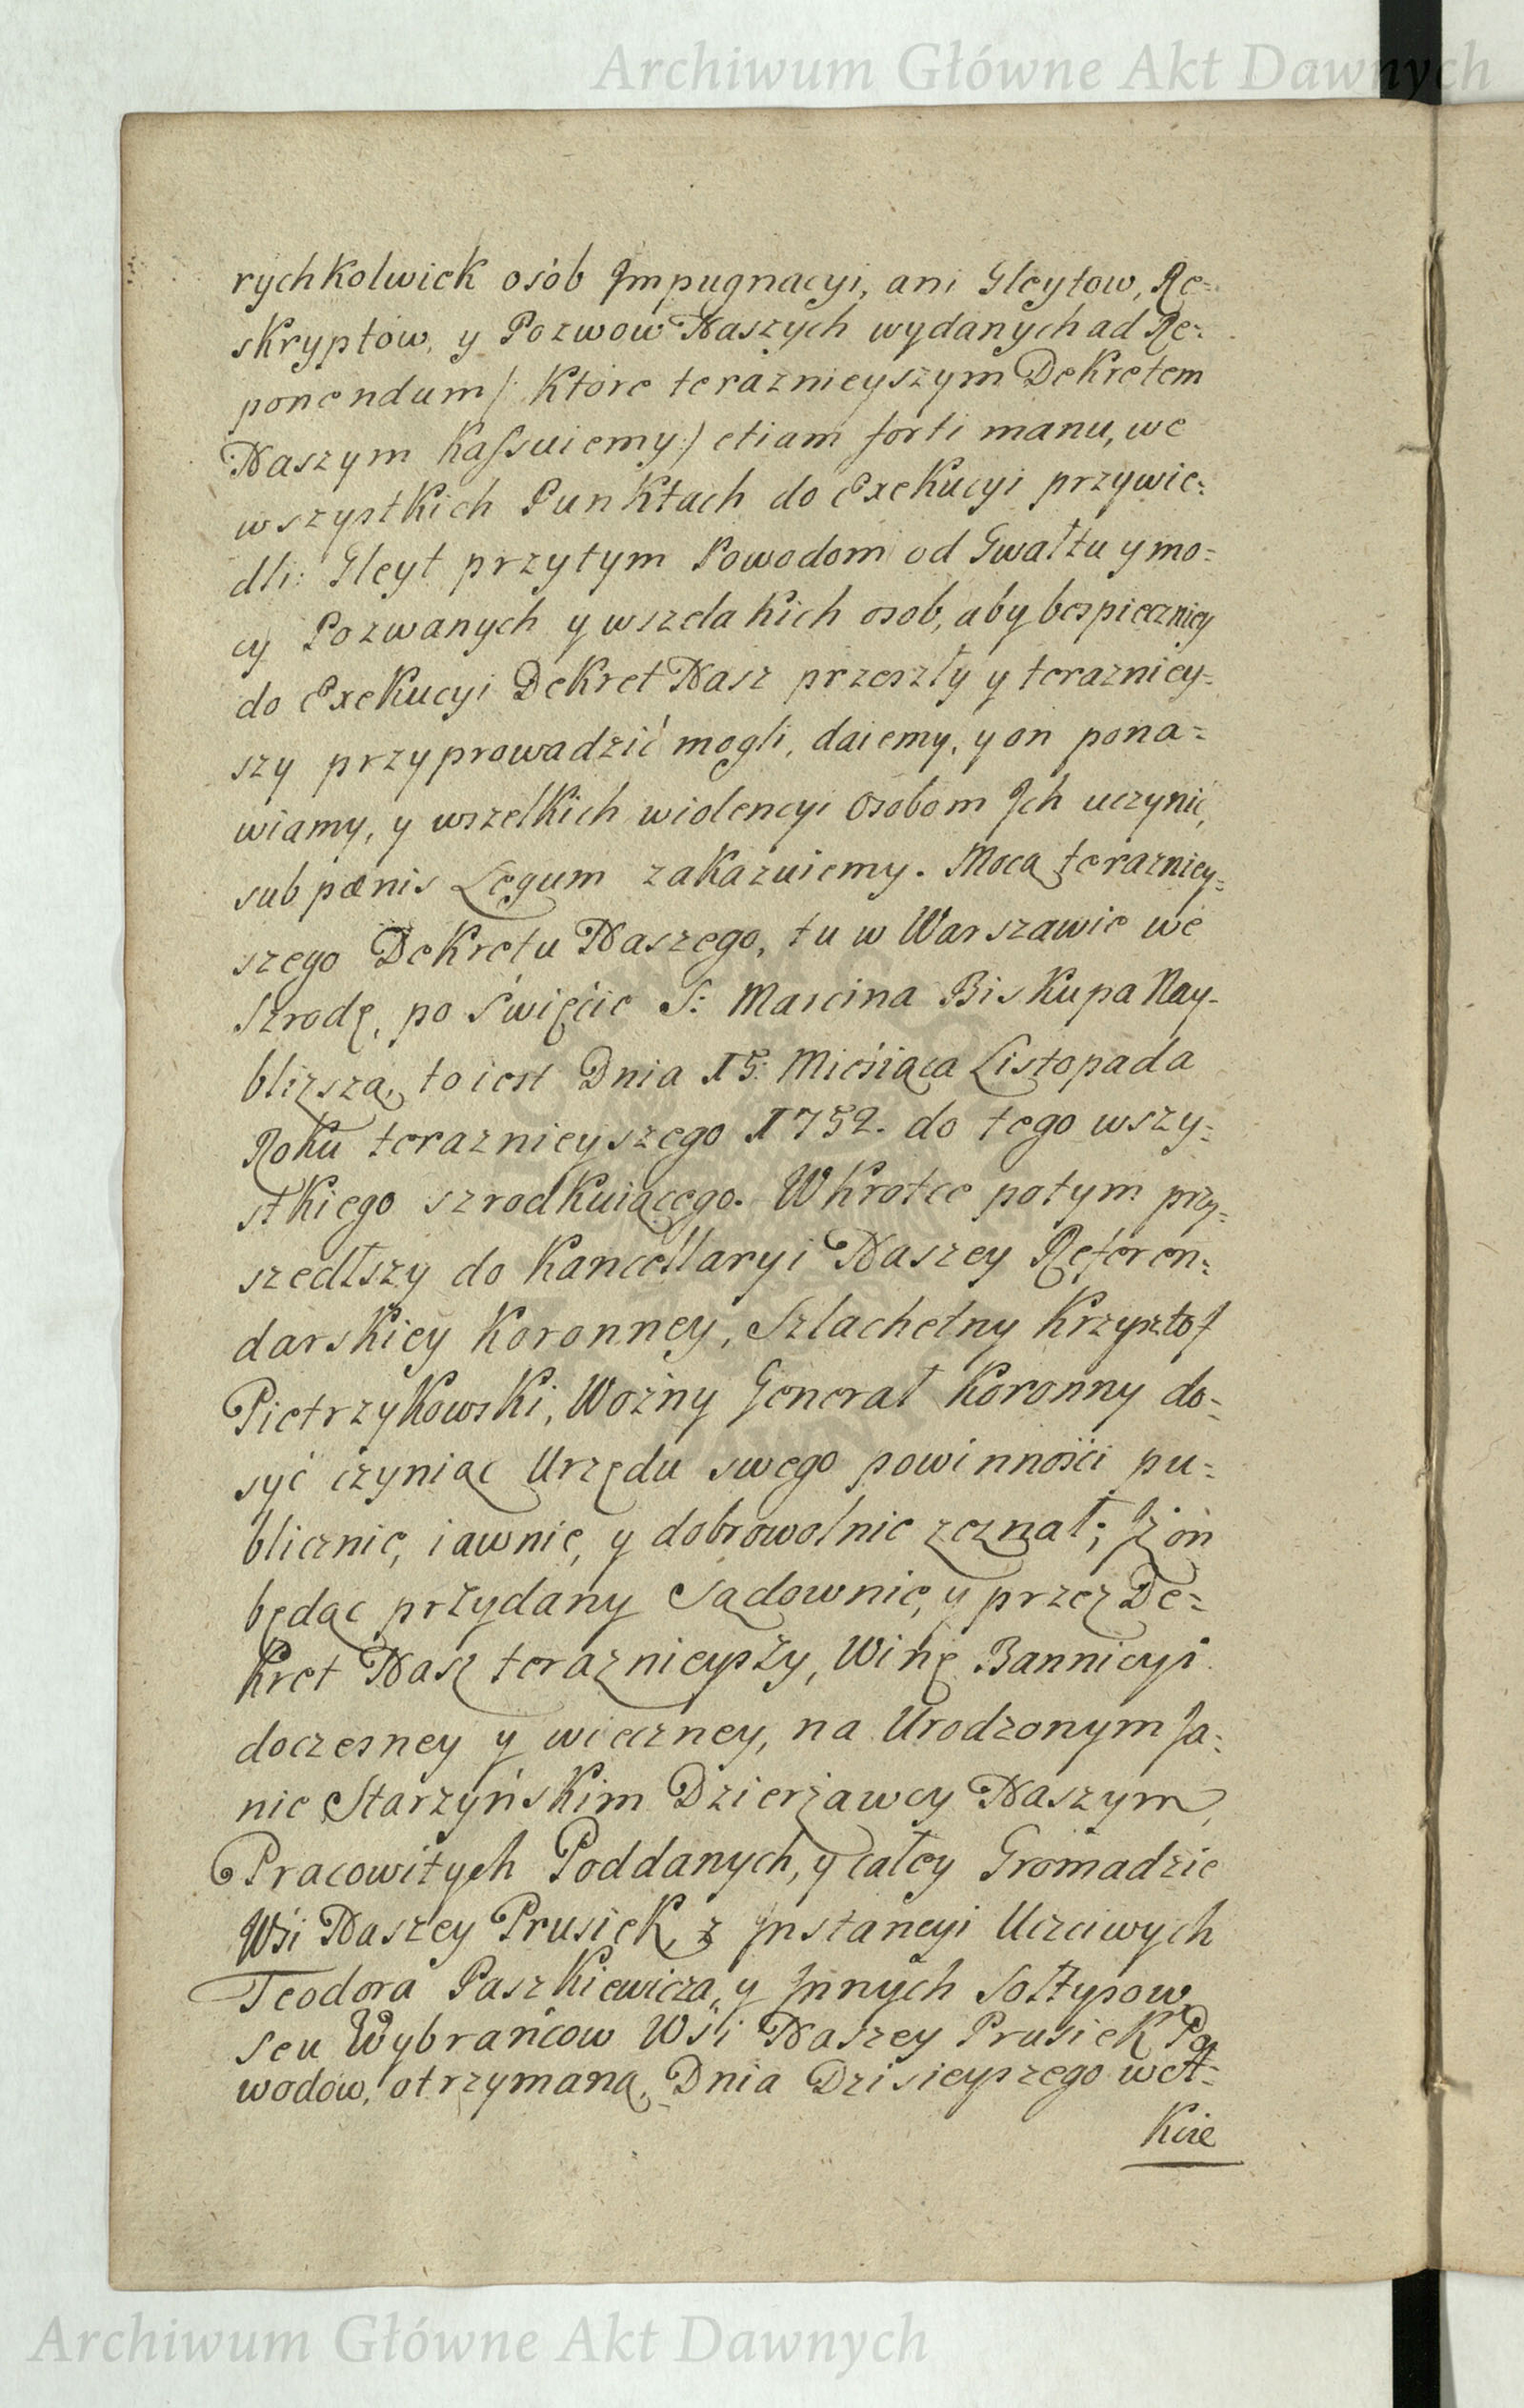 Archiwum Główne Akt Dawnych
rychkolwiek osób Jmpugnacyi, ani Gleytow, Re=
skryptow, y Pozwow Naszych wydanych ad Re=
ponendum /: Ktore teraznieyszym Dekretem
Naszym Kassuiemy:/ etiam forti manu, we
wszystkich Punktach do Exekucyi przywie=
dli: Gleyt przytym Powodom od Gwałtu y mo=
cy Pozwanych y wszelakich osob, aby bespieczniey
do Exekucyi Dekret Nasz przeszły y terazniey=
szy przyprowadzić mogli, daiemy, y on pona=
wiamy, y wszelkich wiolencyi Osobom Jch uczynić,
sub pœnis Legum zakazuiemy. Mocą terazniey=
szego Dekretu Naszego, tu w Warszawie we
Szrodę, po Swięcie S: Marcina Biskupa Nay-
bliższą, to iest Dnia 15. Miesiąca Listopada
Roku teraznieyszego 1752. do tego wszy=
stkiego szrodkuiącego. Wkrotce potym przy=
szedłszy do Kancellaryi Naszey Referen=
darskiey Koronney, Szlachetny Krzysztof
Pietrzykowski, Woźny Generał Koronny do=
syć czyniąc Urzędu swego powinności pu=
blicznie, iawnie, y dobrowolnie zeznał; Jż on
będąc przydany Sądownie, y przez De=
kret Nasz teraznieyszy, Winę Bannicyi
doczesney y wieczney, na Urodzonym Ja=
nie Starzyńskim Dzierżawcy Naszym,
Pracowitych Poddanych, y całey Gromadzie
Wsi Naszey Prusiek, z Jnstancyi Uczciwych
Teodora Paszkiewicza, y Jnnych Sołtysow
seu Wybrańcow Wsi Naszey Prusiek Po
wodow, otrzymaną, Dnia Dzisieyszego wet=
Kie
Archiwum Główne Akt Dawnych